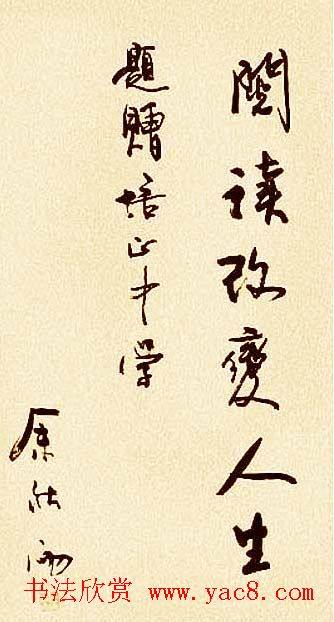 閱讀改變人生
題贈培正中学
余秋雨
书法欣赏 www.yac8.com